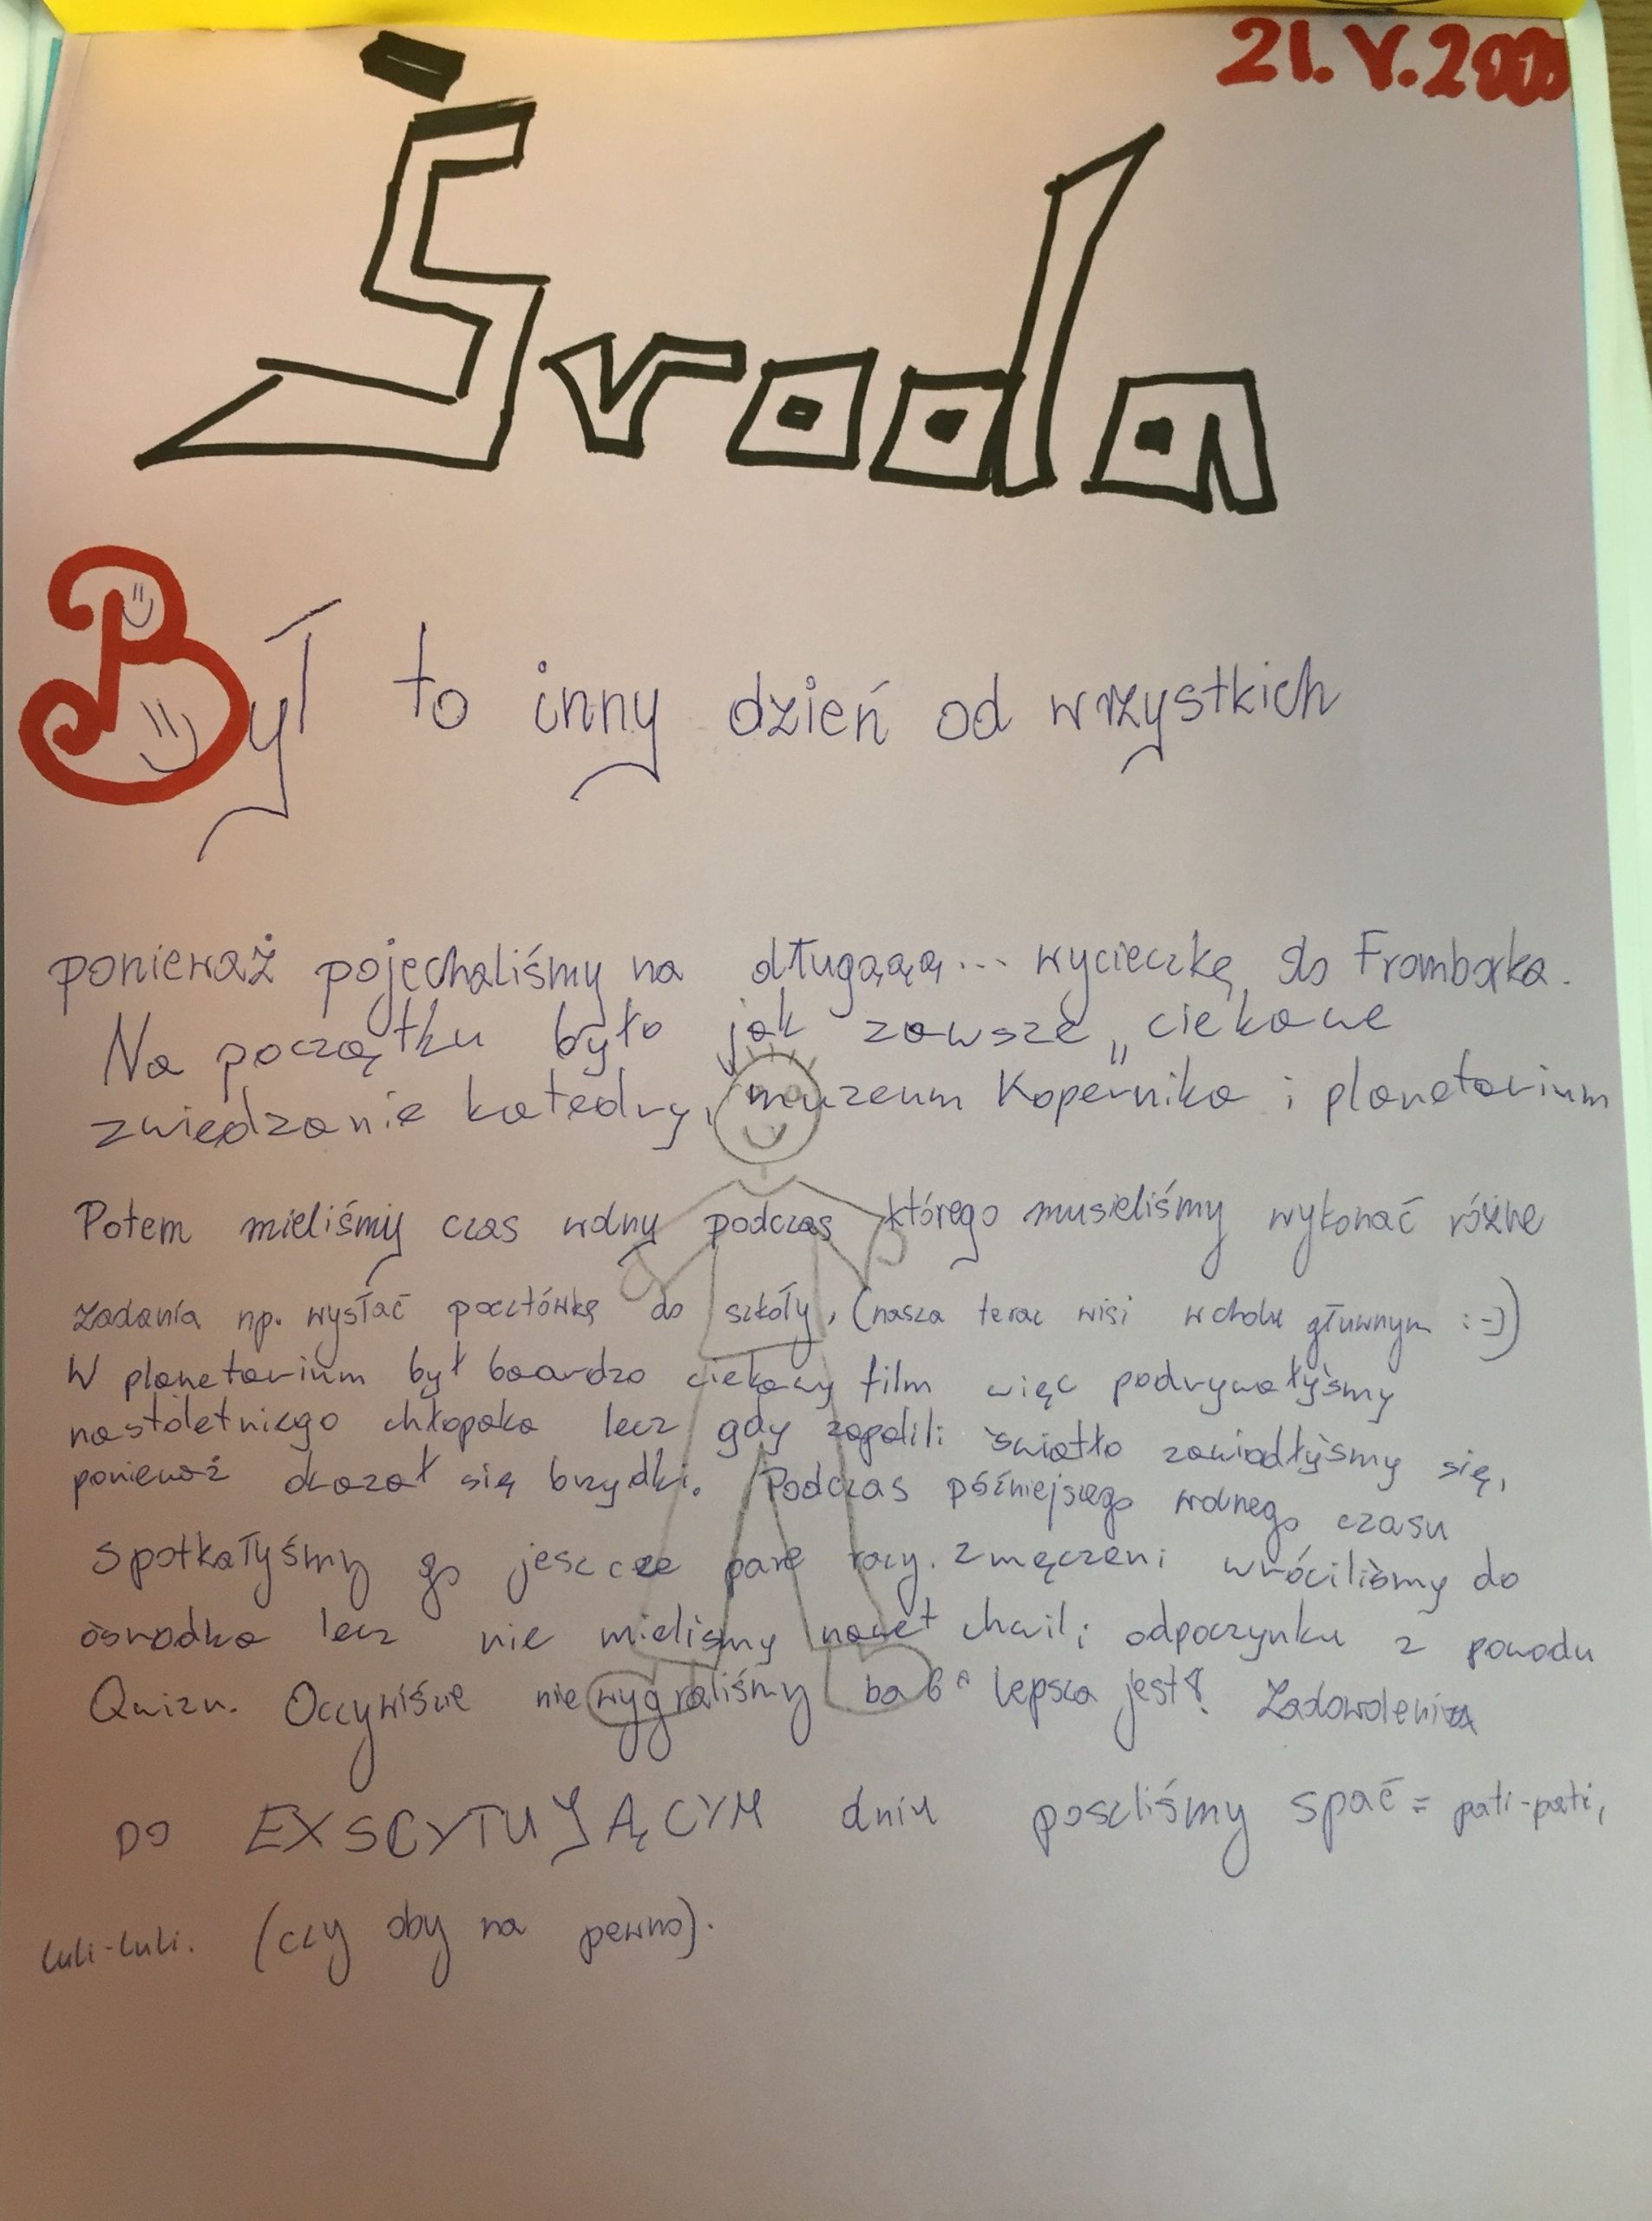 21.V.200
Środa
Był to inny dzień od wrzystkich
ponieważ pojechaliśmy na długąąą... wycieczkę do Fromborka.
Na początku było jak zawsze „ ciekawe
zwiedzanie katedry, muzeum Kopernika i planetarium
Potem mieliśmy czas wolny podczas którego musieliśmy wykonać różne
zadania np. wysłać pocztówkę do szkoły, (nasza teraz wisi w cholu głuwnym :-))
W planetarium był baardzo ciekawy film więc podrywałyśmy
nastoletniego chłopaka lecz gdy zapalili światło zawiodłyśmy się,
ponieważ okazał się brzydki. Podczas późniejszego wolnego czasu
spotkałyśmy go jeszcze pare razy. Zmęczeni wróciliśmy do
ośrodka lecz nie mieliśmy nawet chwili odpoczynku z powodu
Quizu. Oczywiście nie wygraliśmy ba 6a lepsza jest! Zadowoleni
po EXSCYTUJĄCYM dniu poszliśmy spać = pati-pati,
luli-luli. (czy oby na pewno).